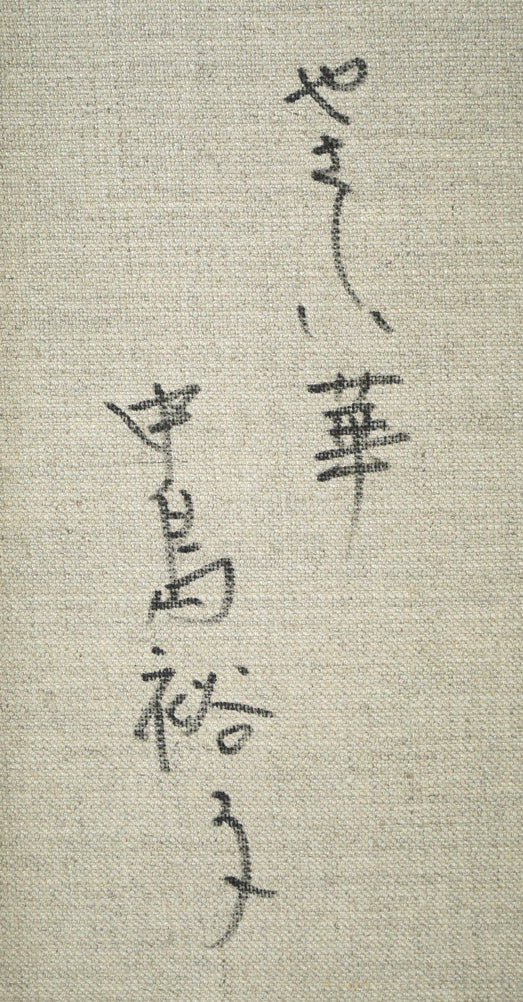 やさしい華
中島裕子